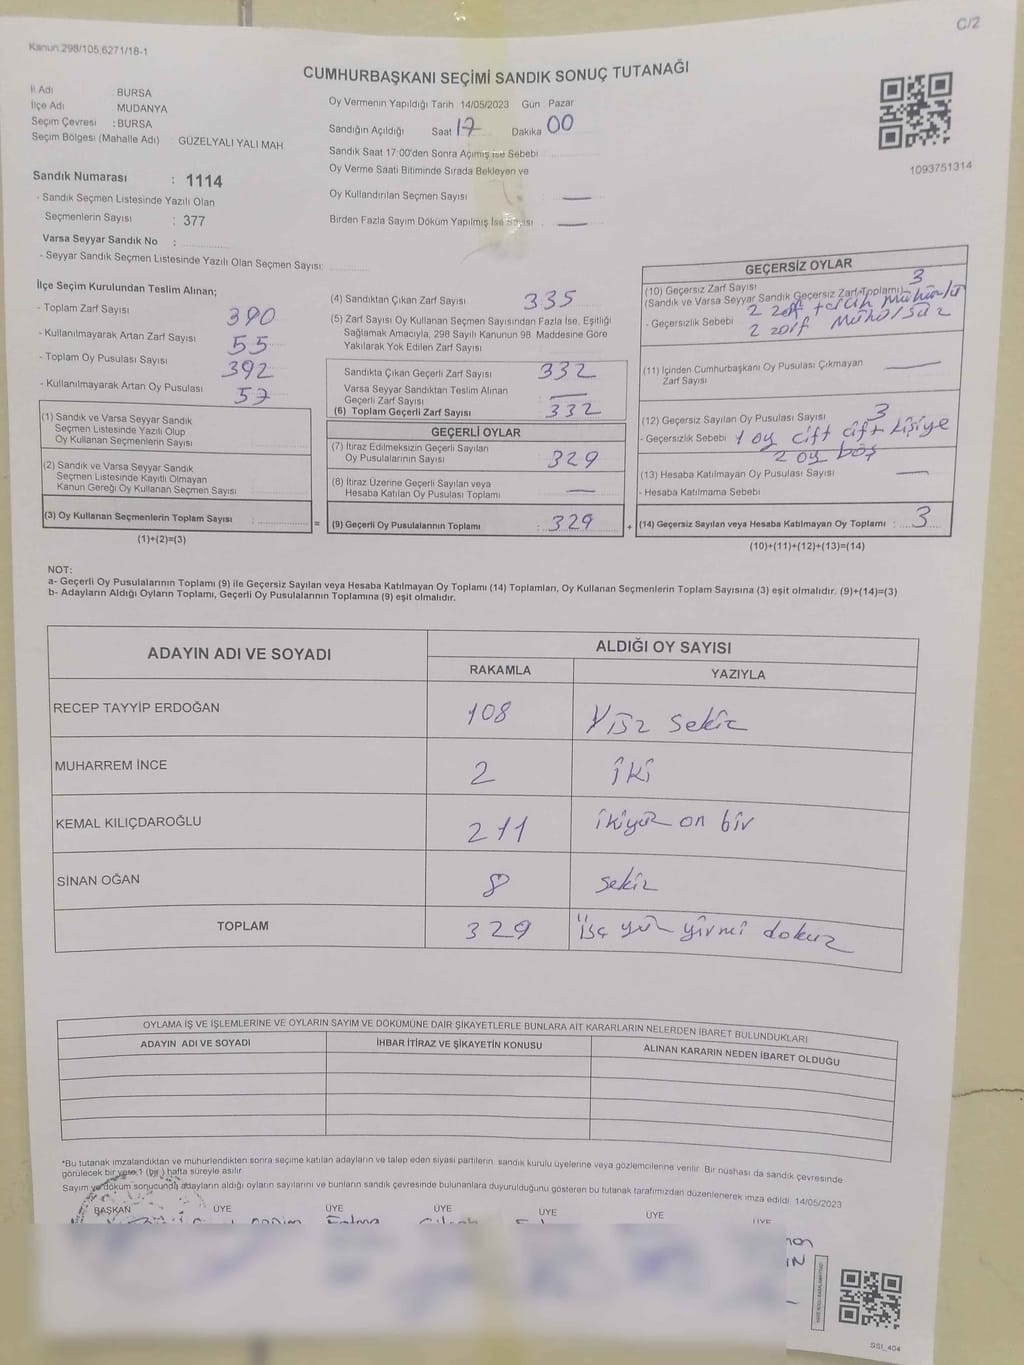 C/2
Kanun:298/105,6271/18-1
CUMHURBAŞKANI SEÇİMİ SANDIK SONUÇ TUTANAĞI
İl Adı : BURSA
İlçe Adı : MUDANYA
Seçim Çevresi : BURSA
Seçim Bölgesi (Mahalle Adı) GÜZELYALI YALI MAH
Sandık Numarası : 1114
- Sandık Seçmen Listesinde Yazılı Olan
Seçmenlerin Sayısı : 377
Varsa Seyyar Sandık No :
- Seyyar Sandık Seçmen Listesinde Yazılı Olan Seçmen Sayısı:
Oy Vermenin Yapıldığı Tarih 14/05/2023 Gün Pazar
Sandığın Açıldığı Saat 17 Dakika 00
Sandık Saat 17:00'den Sonra Açımış ise Sebebi
Oy Verme Saati Bitiminde Sırada Bekleyen ve
Oy Kullandırılan Seçmen Sayısı : —
Birden Fazla Sayım Döküm Yapılmış İse Sayısı : —
1093751314
İlçe Seçim Kurulundan Teslim Alınan;
- Toplam Zarf Sayısı 390
- Kullanılmayarak Artan Zarf Sayısı 55
- Toplam Oy Pusulası Sayısı 392
- Kullanılmayarak Artan Oy Pusulası 57
(1) Sandık ve Varsa Seyyar Sandık
Seçmen Listesinde Yazılı Olup
Oy Kullanan Seçmenlerin Sayısı
(2) Sandık ve Varsa Seyyar Sandık
Seçmen Listesinde Kayıtlı Olmayan
Kanun Gereği Oy Kullanan Seçmen Sayısı
(3) Oy Kullanan Seçmenlerin Toplam Sayısı : =
(1)+(2)=(3)
(4) Sandıktan Çıkan Zarf Sayısı 335
(5) Zarf Sayısı Oy Kullanan Seçmen Sayısından Fazla İse, Eşitliği
Sağlamak Amacıyla, 298 Sayılı Kanunun 98. Maddesine Göre
Yakılarak Yok Edilen Zarf Sayısı
Sandıkta Çıkan Geçerli Zarf Sayısı 332
Varsa Seyyar Sandıktan Teslim Alınan
Geçerli Zarf Sayısı —
(6) Toplam Geçerli Zarf Sayısı 332
GEÇERLİ OYLAR
(7) İtiraz Edilmeksizin Geçerli Sayılan
Oy Pusulalarının Sayısı 329
(8) İtiraz Üzerine Geçerli Sayılan veya
Hesaba Katılan Oy Pusulası Toplamı —
(9) Geçerli Oy Pusulalarının Toplamı : 329 +
GEÇERSİZ OYLAR
(10) Geçersiz Zarf Sayısı 3
(Sandık ve Varsa Seyyar Sandık Geçersiz Zarf Toplamı)
- Geçersizlik Sebebi 2 zarf tercih mühürlü
2 zarf mühürsüz
(11) İçinden Cumhurbaşkanı Oy Pusulası Çıkmayan
Zarf Sayısı —
(12) Geçersiz Sayılan Oy Pusulası Sayısı 3
- Geçersizlik Sebebi 1 oy çift çift kişiye
2 oy boş
(13) Hesaba Katılmayan Oy Pusulası Sayısı —
- Hesaba Katılmama Sebebi
(14) Geçersiz Sayılan veya Hesaba Katılmayan Oy Toplamı : 3
(10)+(11)+(12)+(13)=(14)
NOT:
a- Geçerli Oy Pusulalarının Toplamı (9) ile Geçersiz Sayılan veya Hesaba Katılmayan Oy Toplamı (14) Toplamları, Oy Kullanan Seçmenlerin Toplam Sayısına (3) eşit olmalıdır. (9)+(14)=(3)
b- Adayların Aldığı Oyların Toplamı, Geçerli Oy Pusulalarının Toplamına (9) eşit olmalıdır.
ADAYIN ADI VE SOYADI ALDIĞI OY SAYISI
RAKAMLA YAZIYLA
RECEP TAYYİP ERDOĞAN 108 Yüz sekiz
MUHARREM İNCE 2 iki
KEMAL KILIÇDAROĞLU 211 ikiyüz on bir
SİNAN OĞAN 8 sekiz
TOPLAM 329 üç yüz yirmi dokuz
OYLAMA İŞ VE İŞLEMLERİNE VE OYLARIN SAYIM VE DÖKÜMÜNE DAİR ŞİKAYETLERLE BUNLARA AİT KARARLARIN NELERDEN İBARET BULUNDUKLARI
ADAYIN ADI VE SOYADI İHBAR İTİRAZ VE ŞİKAYETİN KONUSU ALINAN KARARIN NEDEN İBARET OLDUĞU
*Bu tutanak imzalandıktan ve mühürlendikten sonra seçime katılan adayların ve talep eden siyasi partilerin sandık kurulu üyelerine veya gözlemcilerine verilir. Bir nüshası da sandık çevresinde
görülecek bir yere 1 (bir) hafta süreyle asılır
Sayım ve döküm sonucunda adayların aldığı oyların sayılarını ve bunların sandık çevresinde bulunanlara duyurulduğunu gösteren bu tutanak tarafımızdan düzenlenerek imza edildi. 14/05/2023
BAŞKAN ÜYE ÜYE ÜYE ÜYE ÜYE ÜYE
SSI_404